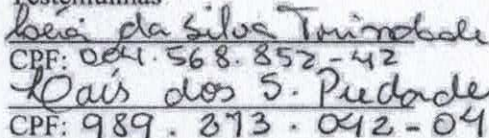 Testemunhas
da Silva Trindade
CPF: 004.568.852-42
Lais dos S. Piedade
CPF: 989.373.042-04